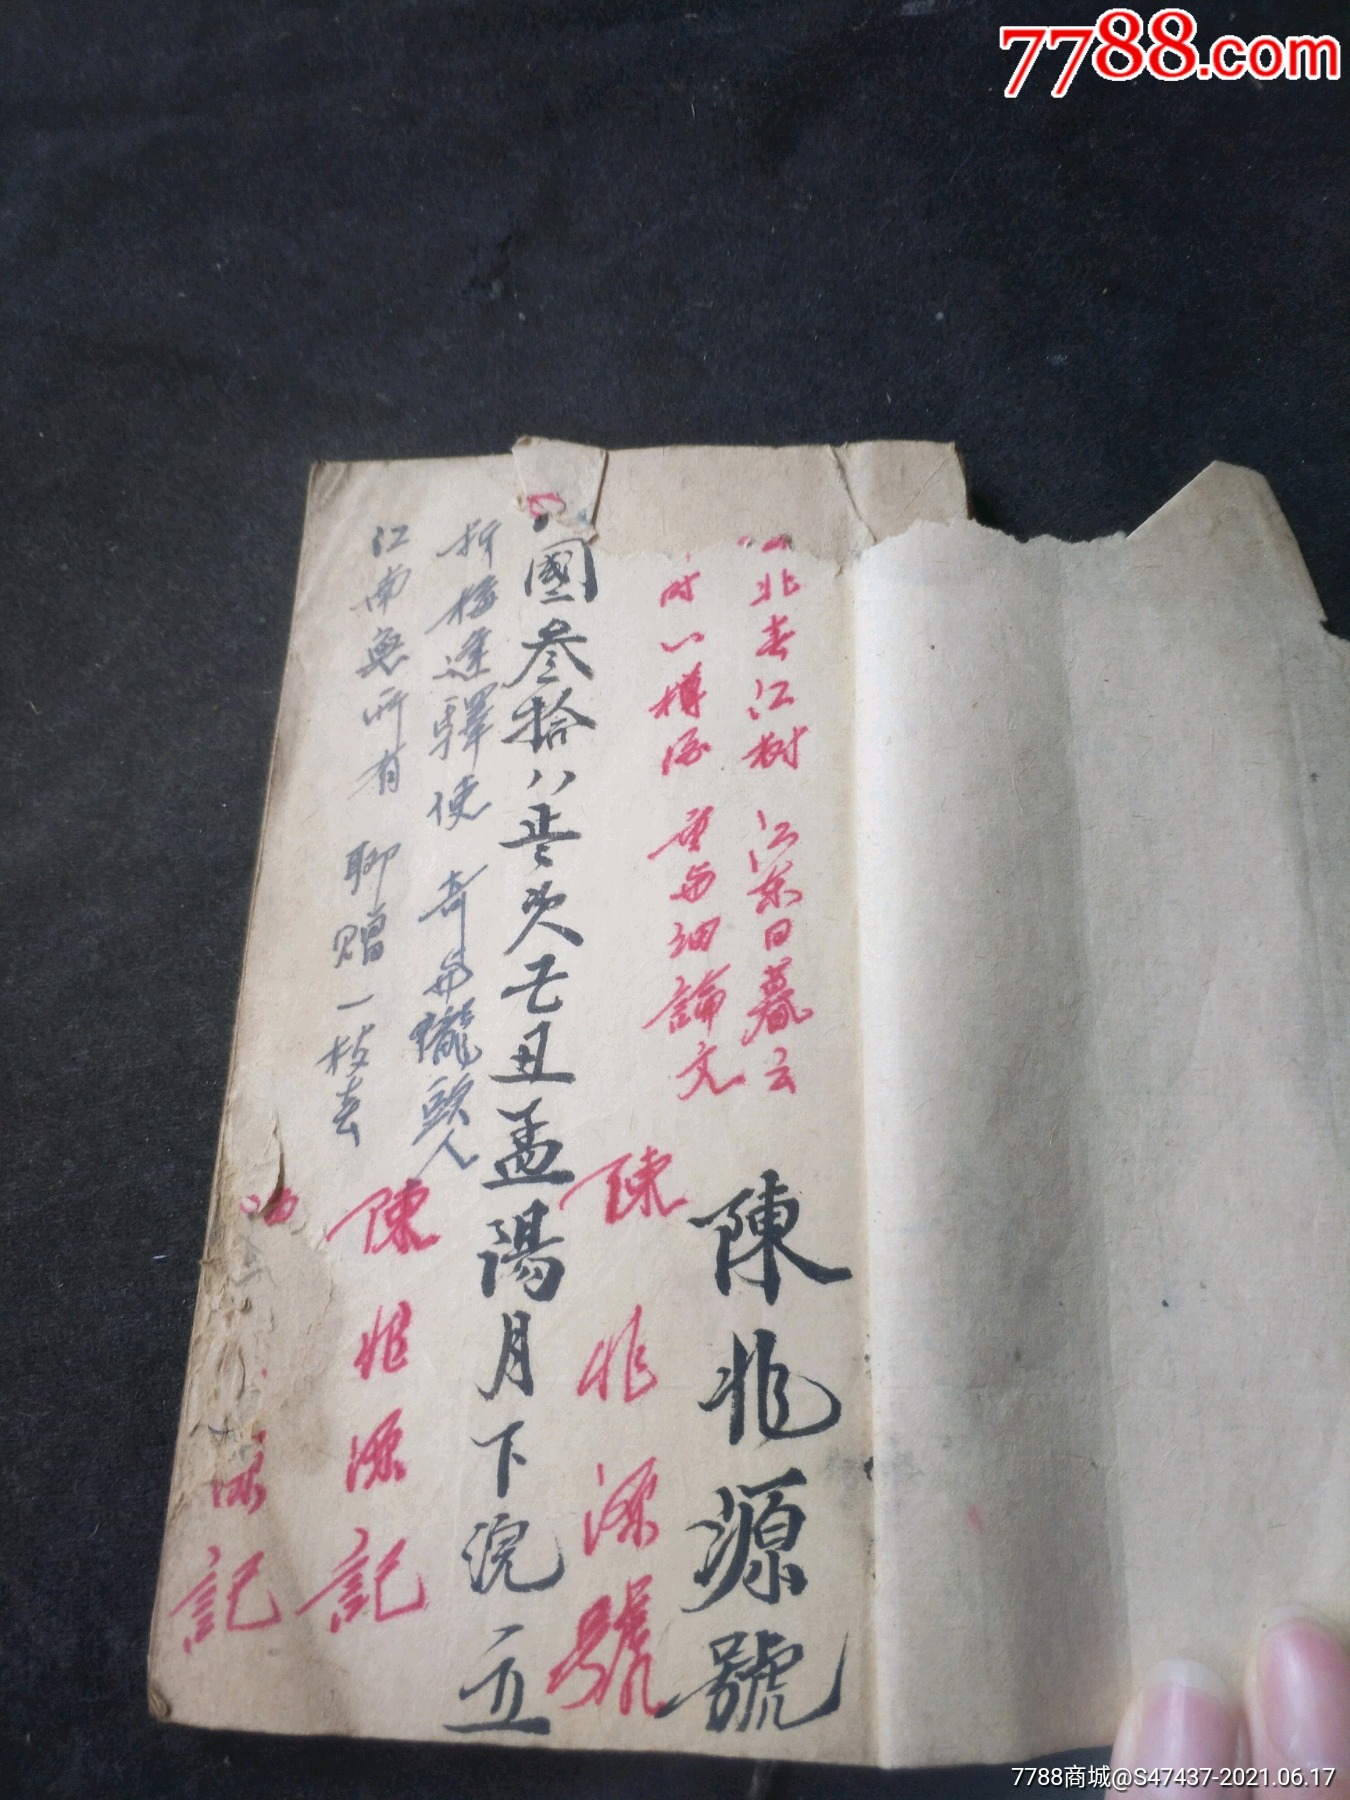 7788.com
北春江树 江东日暮云
时一樽酒 重与细論文
陳兆源號
陳兆源號
國叁拾八年歲次己丑孟陽月下浣立
折梅逢驛使 寄与隴頭人
江南無所有 聊贈一枝春
陳兆源記
源記
7788商城@S47437-2021.06.17